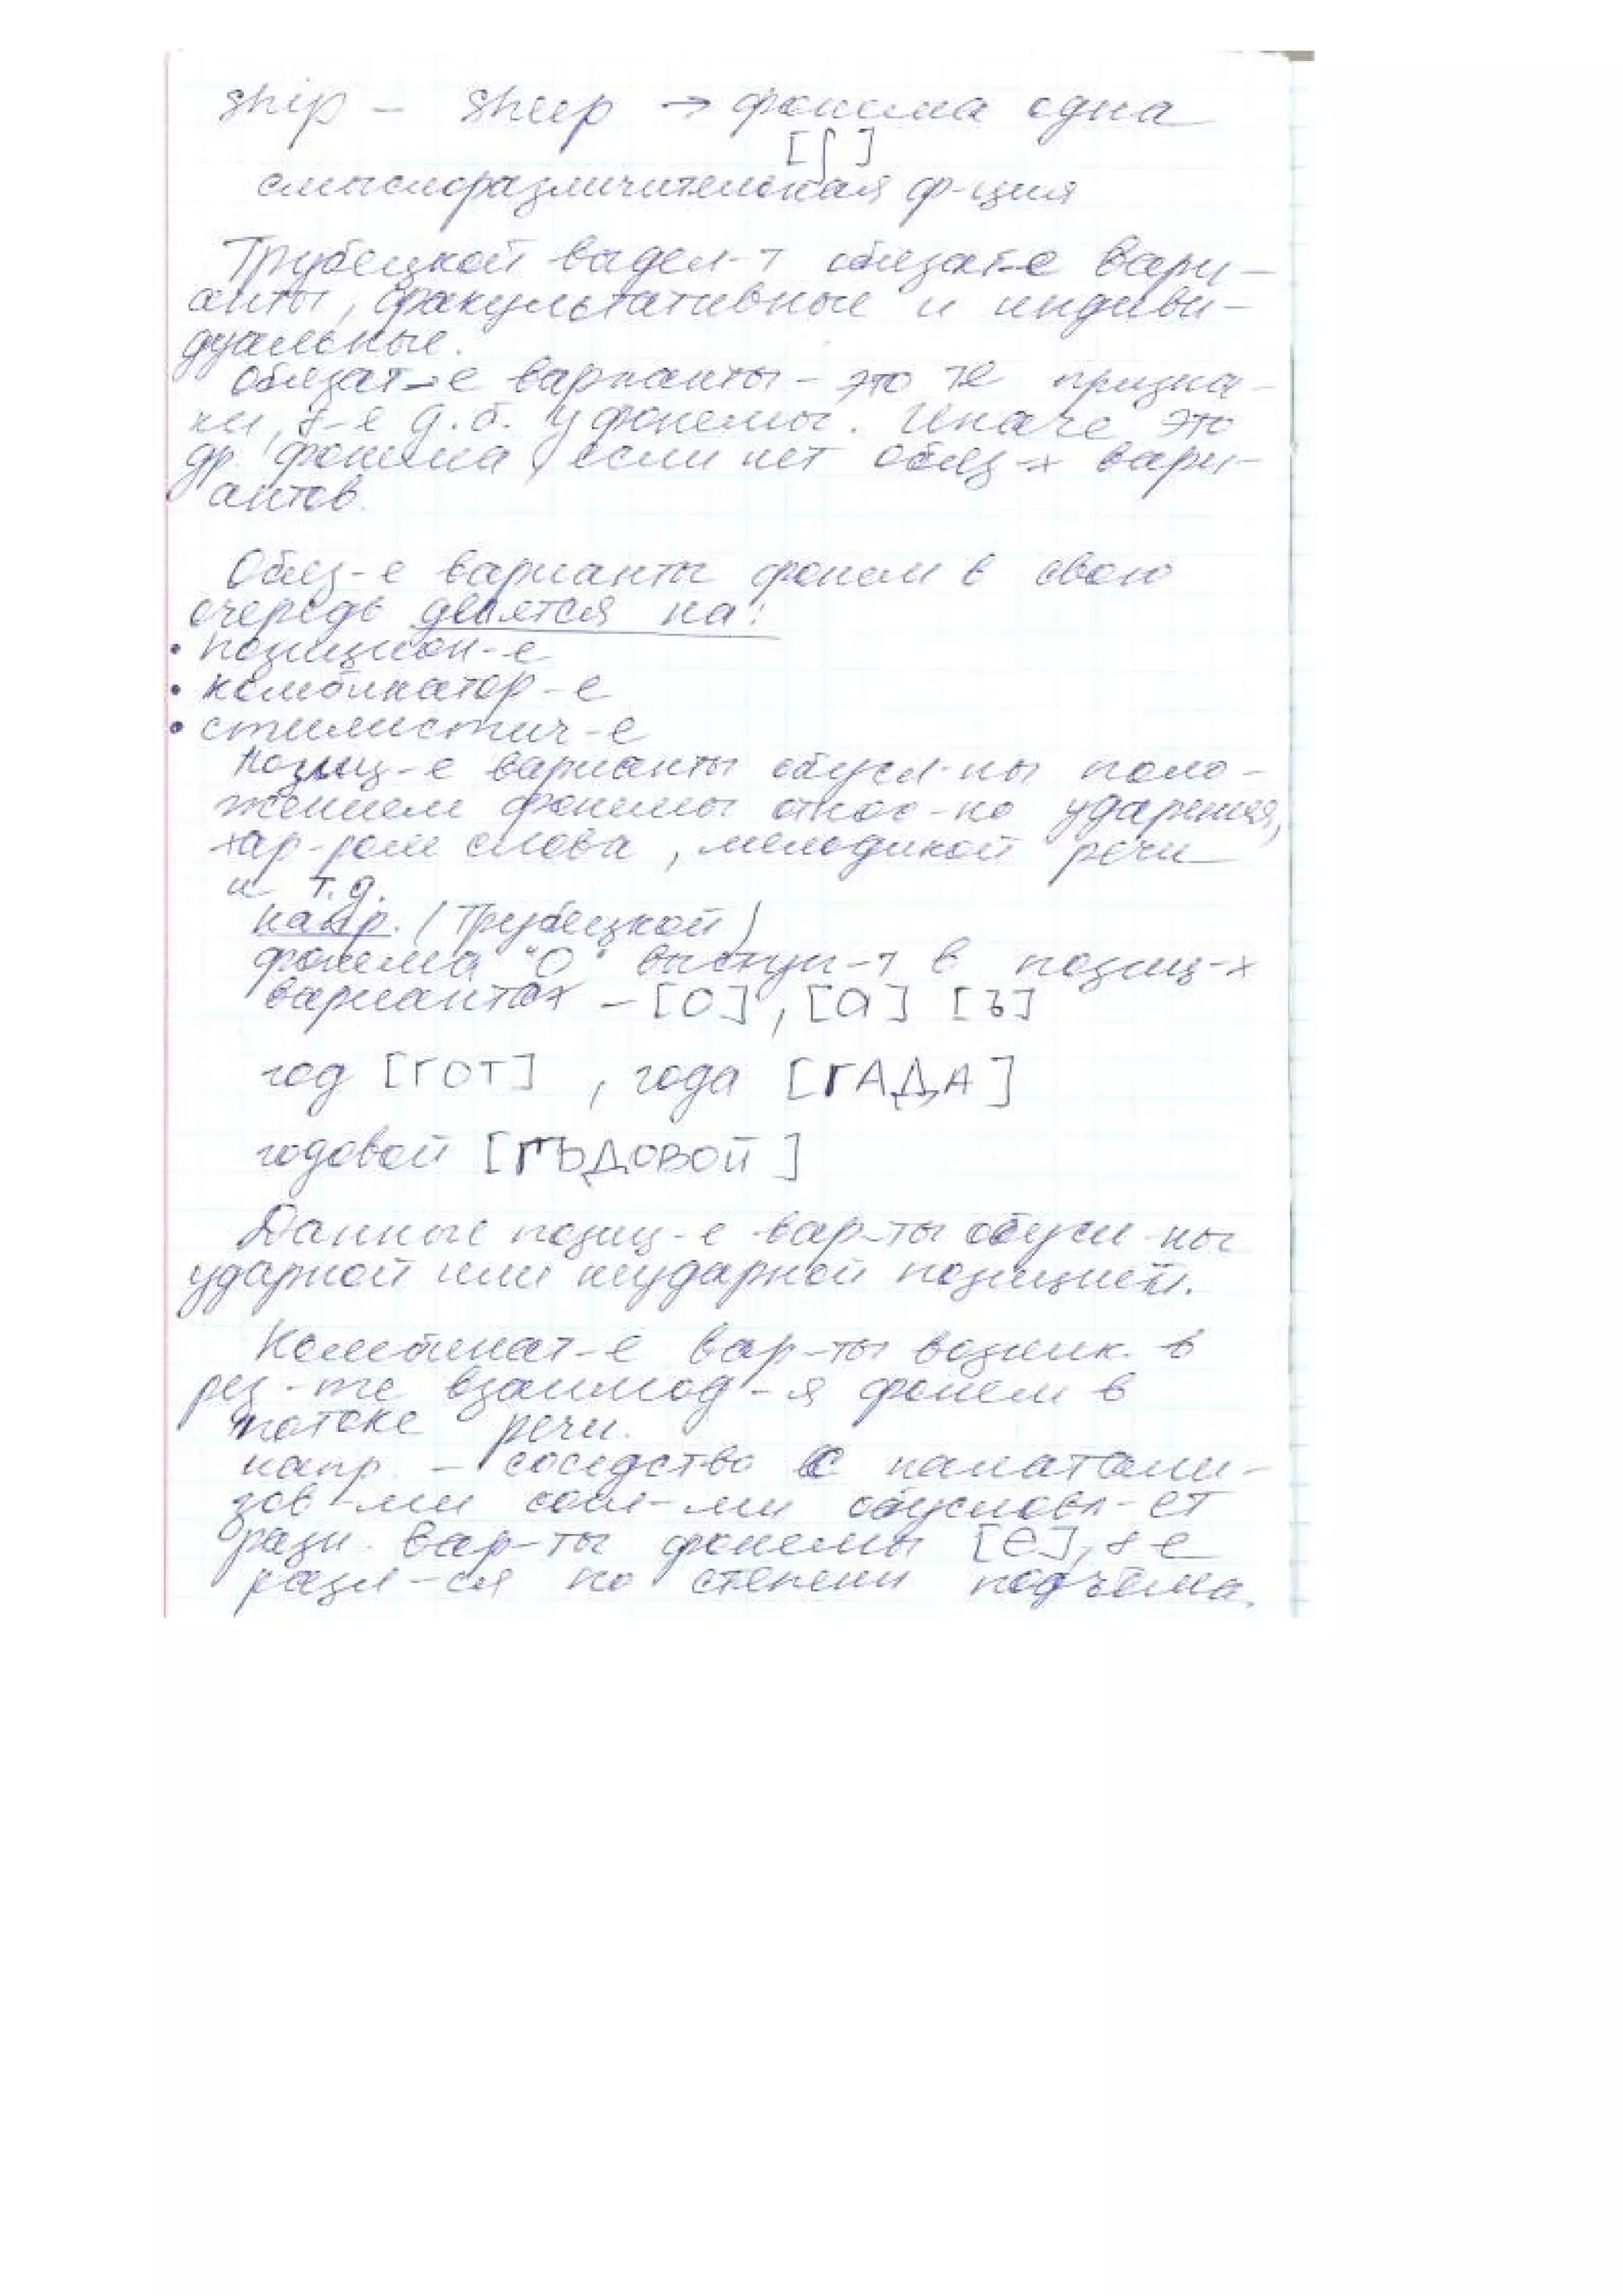 ship – sheep → фонема одна
[ʃ]
смыслоразличительная ф-ция
Трубецкой выдел-т обязат-е вари-
анты, факультативные и индиви-
дуальные.
Обязат-е варианты – это те призна-
ки, к-е д.б. у фонемы. Иначе это
др. фонема, если нет обяз-х вари-
антов.
Обяз-е варианты фонем в свою
очередь делятся на:
• позицион-е
• комбинатор-е
• стилистич-е
Позиц-е варианты обусл-ны поло-
жением фонемы относ-но ударения,
хар-ром слова, мелодикой речи
и т.д.
напр. (Трубецкой)
фонема "О" выступ-т в позиц-х
вариантах – [О], [а] [ъ]
год [ГОТ] , года [ГАДА]
годовой [ГЪДОВОЙ]
Данные позиц-е вар-ты обусл-ны
ударной или неударной позицией.
Комбинат-е вар-ты возник. в
рез-те взаимод-я фонем в
потоке речи.
напр – соседство с палатали-
зов-ми согл-ми обусловл-ет
разн. вар-ты фонемы [е], к-е
разл-ся по степени подъёма.